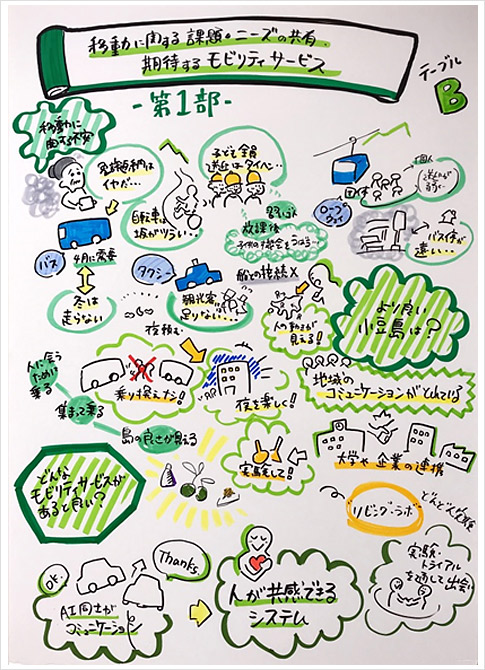 移動に関する課題・ニーズの共有
期待するモビリティサービス
テーブル
B
-第1部-
移動に
関する不安
免許返納は
イヤだ…
自転車は
坂がツラい…
子ども全員
送迎はタイヘン…
習いごと
放課後
ロープ
ウェイ
団体
個人
バス停が
遠い…
バス
4月に需要
冬は
走らない
タクシー
観光客
足りない…
船との接続×
人の動きが
見える!
より良い
小豆島は?
夜積む
乗り換えナシ!
夜を楽しく!
地域の
コミュニケーションがとれている
人に会う
ために
乗る
集まって乗る
島の良さが見える
実験して!
大学や企業の連携
どんな
モビリティサービスが
あると良い?
リビング・ラボ
どんどん実験
OK!
Thanks
AI同士が
コミュニケーション
人が共感できる
システム
実験・
トライアル
を通して出会い